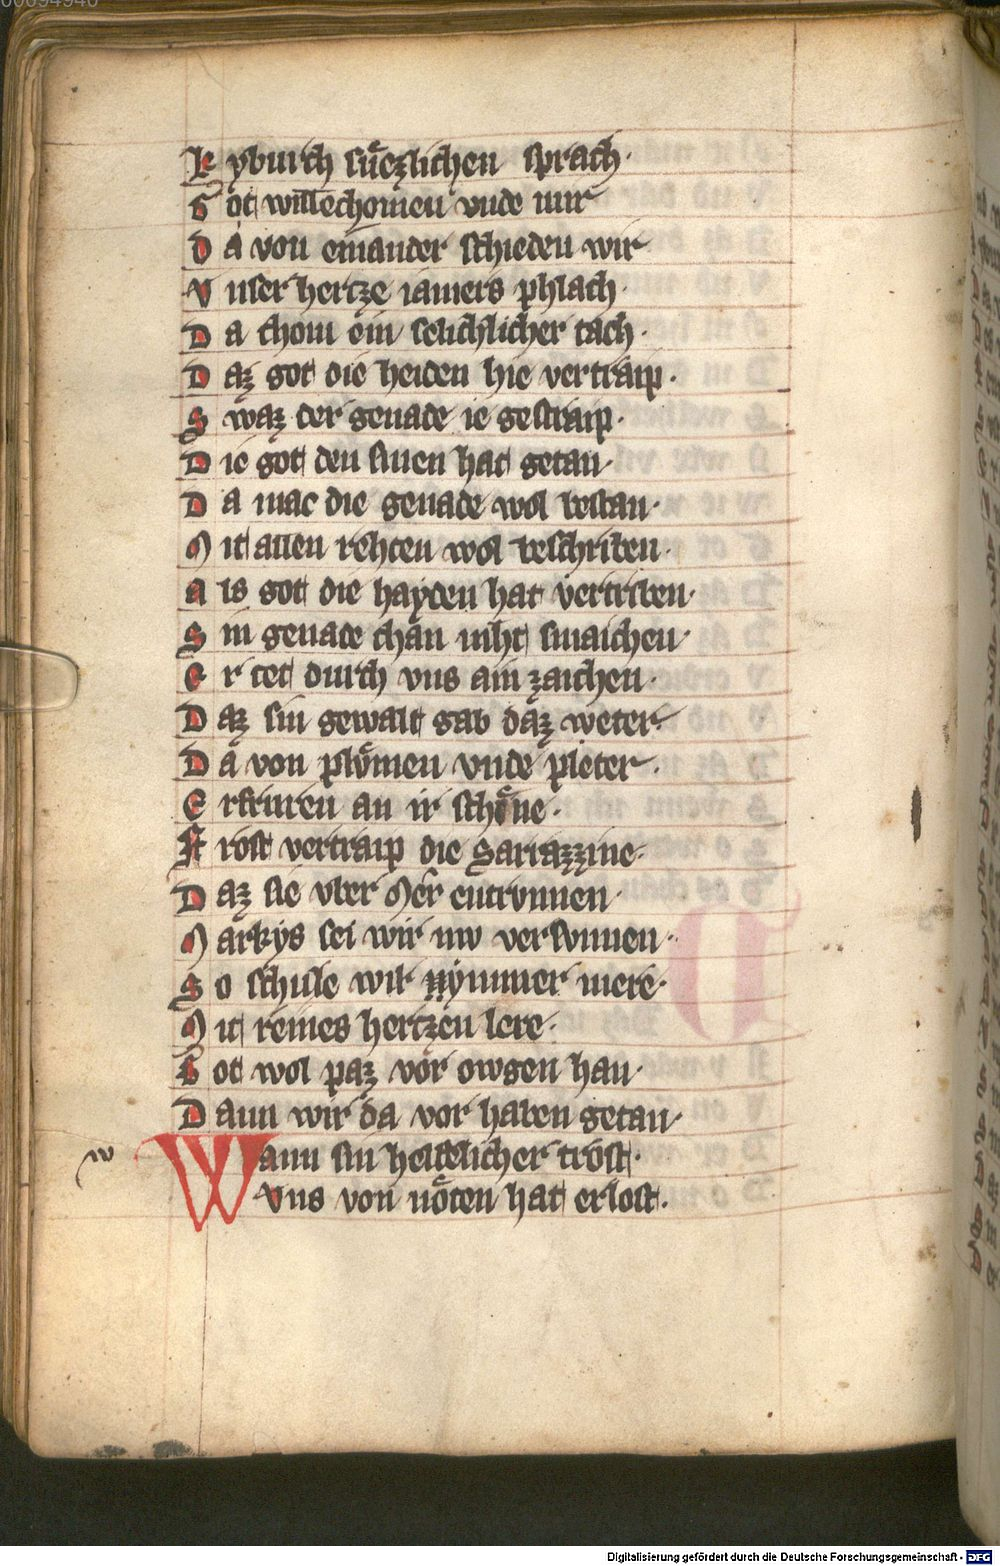 00694946
Kyburch sůezlichen sprach·
Got willechomen vnde mir
Da von einander schieden wir
Vnser hertze iamers phlach·
Da chom ein selichlicher tach·
Daz got die heiden hie vertraip·
Swaz der genade ie gestraip·
Die got den sinen hat getan·
Da mac die genade wol bestan·
Mit allen rehten wol beschriben·
Als got die hayden hat vertriben·
Sin genade chan niht swaichen·
Er tet durch vns ain zaichen·
Daz sin gewalt gab daz weter·
Da von plůmen vnde pleter·
Erfruren an ir schône·
Frost vertraip die Sarrazzine·
Daz sie vber Mer entrvnnen·
Markys sei wir nw versvnnen·
So schvle wir nymmer mere·
Mit reines hertzen lere·
Got wol paz vor owgen han·
Dann wir da vor haben getan·
w
Wann sin helflicher trost·
vns von nôten hat erlost·
Digitalisierung gefördert durch die Deutsche Forschungsgemeinschaft - DFG